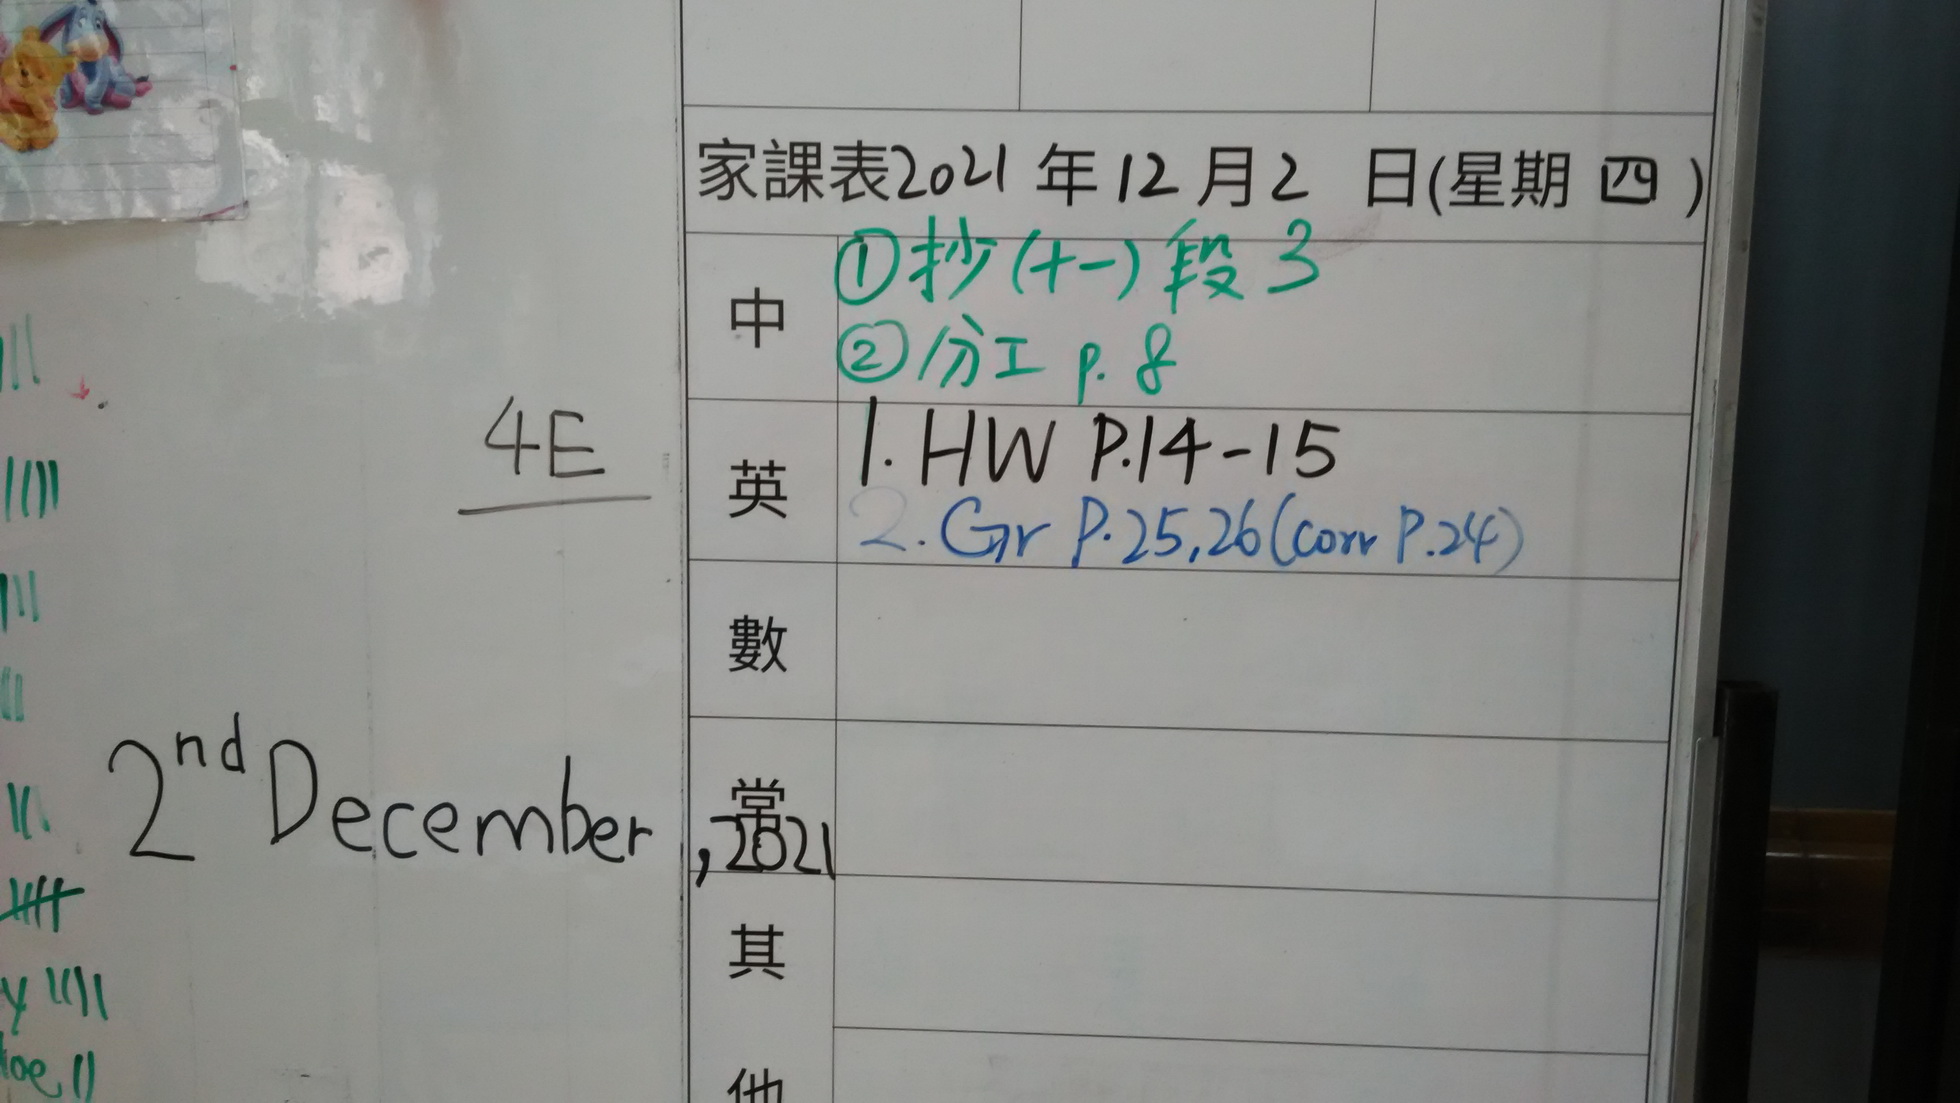 家課表2021年12月2日(星期四)
中
①抄(十一)段3
②分工 p.8
4E
英
1. HW P.14-15
2. Gr P.25,26(corr P.24)
數
2nd December, 2021
常
其
他